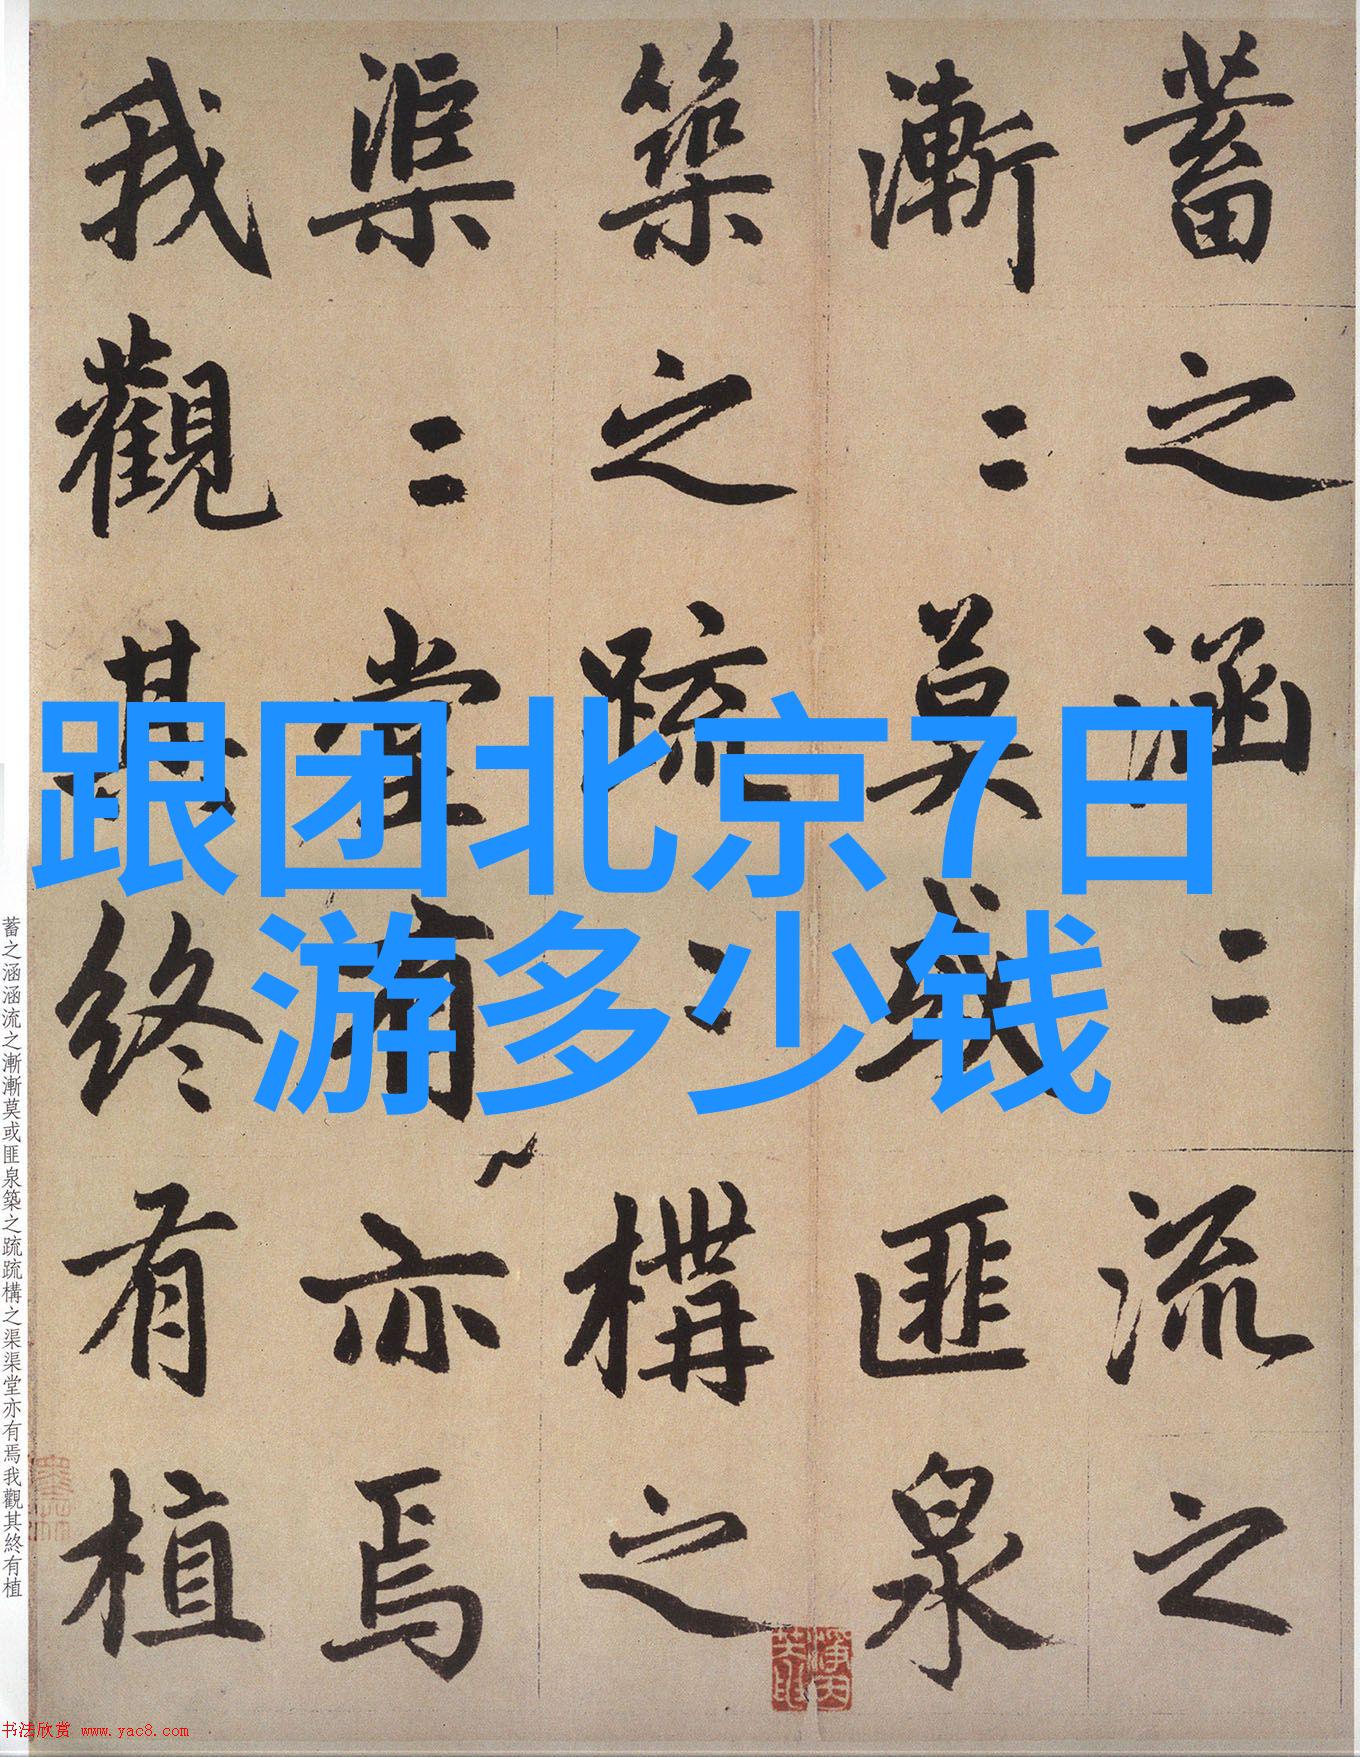 跟团北京7日
游多少钱
蓄之涵〻流之
漸〻莫或匪泉
築之疏〻構之
渠〻堂有亦焉
我觀其終有植
蓄之涵涵流之漸漸莫或匪泉築之疏疏構之渠渠堂亦有焉我觀其終有植
书法欣赏 www.yac8.com